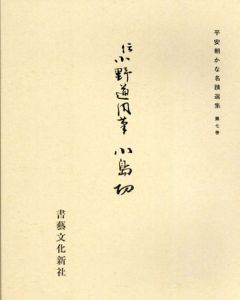 平安朝かな名蹟選集 第七巻
伝小野道風筆 小島切
書藝文化新社